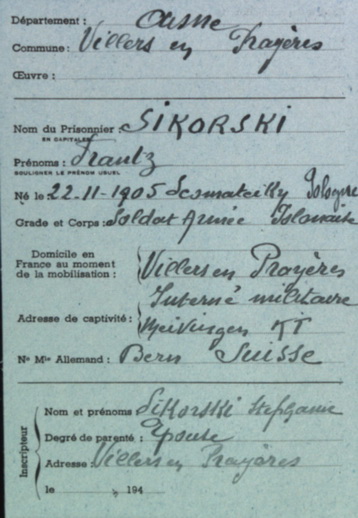 Département : Aisne
Commune : Villers en Prayères
Œuvre :
Nom du Prisonnier : SIKORSKI
EN CAPITALES
Prénoms : Frantz
SOULIGNER LE PRÉNOM USUEL
Né le 22-11-1905 Pologne
Grade et Corps : Soldat Armée Polonaise
Domicile en
France au moment
de la mobilisation : Villers en Prayères
Interné militaire
Adresse de captivité : Meiringen KT
No Mle Allemand : Bern Suisse
Inscripteur
Nom et prénoms Sikorski
Degré de parenté : Epouse
Adresse Villers en Prayères
le , 194